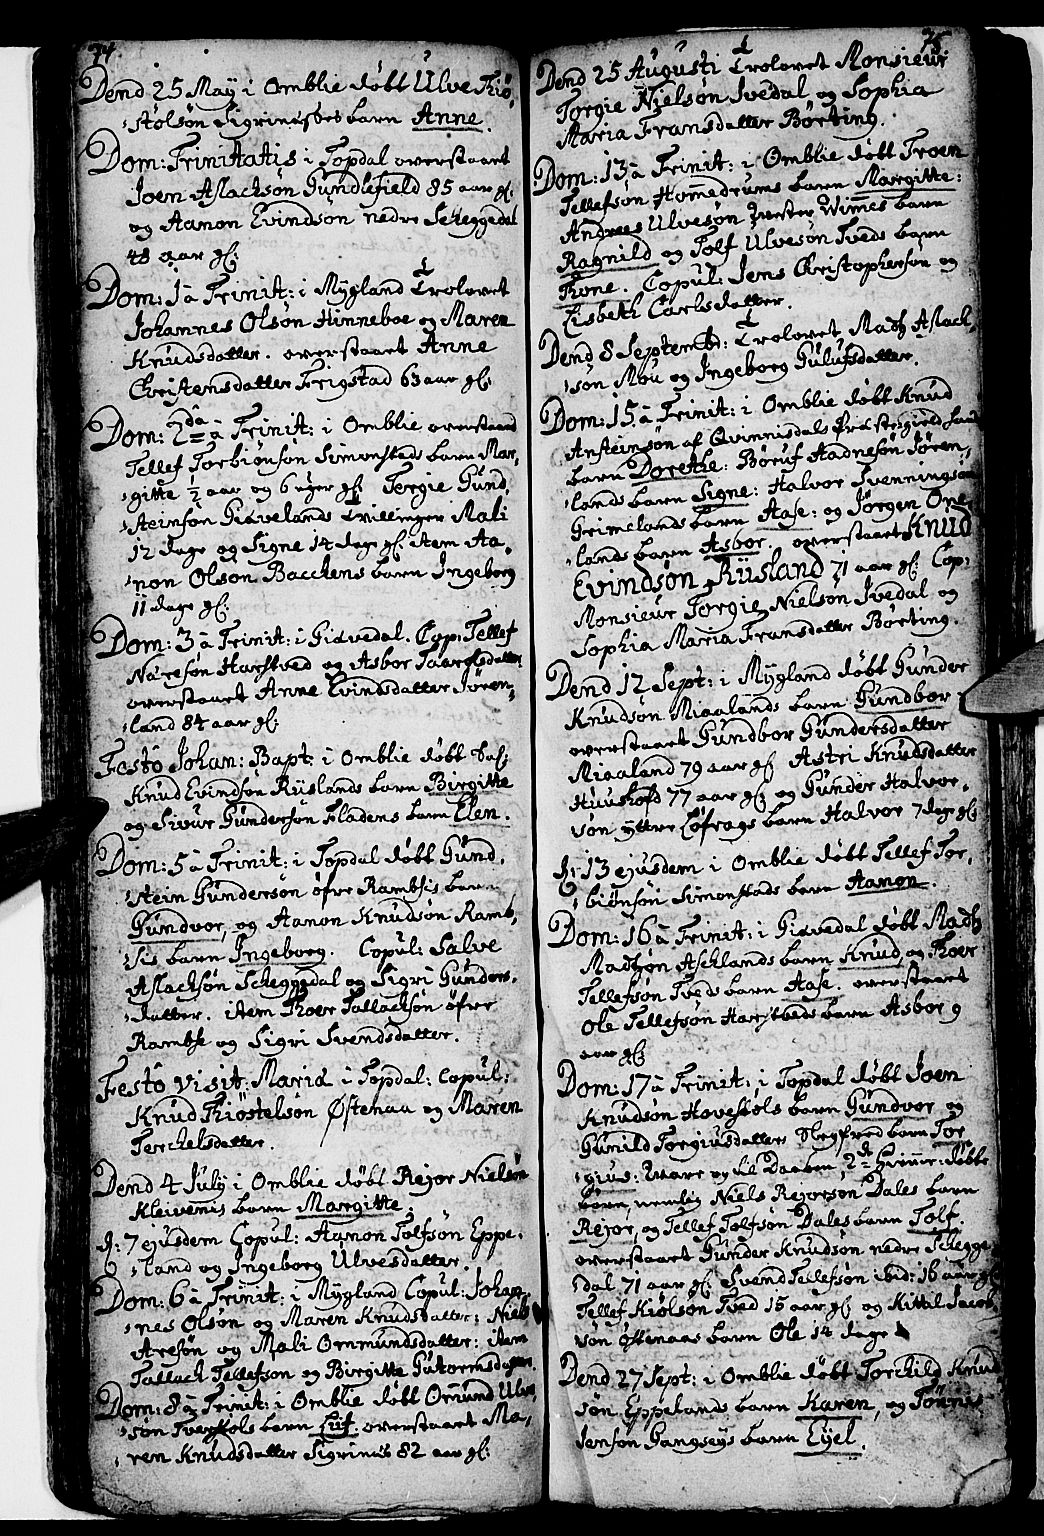 74.
Dend 25 May i Omblie døbt Ulve Thiø,
stølsøn Sigrinestes barn Anne.
Dom: Trinitatis i Topdal overstaaet
Joen Aslachsøn Gundlefield 85 aar gl:
og Aamon Evindsøn nedre Scheggedal
48 aar gl:
Dom: 1 à Trinit: i Mygland Trolovet
Johannes Olsøn Hinneboe og Maren
Knudsdatter. overstaaet Anne
Christensdatter Frigstad 63 aar gl:
Dom: 2da à Trinit: i Omblie overstaaed
Tellef Torbiønsøn Simonstads barn Mar,
gitte ½ aar og 6 uger gl: Tergie Gund,
steinsøn Gidvelands Tvillinger Mali
12 dage og Signe 14 dage gl: item Aa,
non Olsøn Bacchens barn Ingeborg
11 dage gl:
Dom: 3 à Trinit: i Gidvedal. Cop: Tellef
Naresøn Harstved og Asbor Taaraldsdatter
overstaaet Anne Evindsdatter Jøren,
land 84 aar gl:
Festo Johan: Bapt: i Omblie døbt
Knud Evindsøn Rüslands barn Birgitte
og Sivur Gundersøn Fladens barn Elen.
Dom: 5 à Trinit: i Topdal døbt Gund,
stein Gundersøn øfre Rambsis barn
Gundvor, og Aamon Knudsøn Ramb,
sis barn Ingeborg. Copul: Salve
Aslachsøn Scheggedal og Sigri Gunders,
datter. item Thoer Tallachsøn øfre
Rambse og Sigri Svendsdatter.
Festo Visit: Mariæ i Topdal: Copul:
Knud Thiøstelsøn Østenaa og Maren
Terchelsdatter.
Dend 4 July i Omblie døbt Rejor Nielsøn
Kleivenis barn Margitte,
d: 7 ejusdem Copul: Aamon Tolfsøn Eppe,
land og Ingeborg Ulvesdatter.
Dom: 6 à Trinit: i Mygland Copul: Johan,
nes Olsøn og Maren Knudsdatter; Niels
Aresøn og Mali Ommundsdatter: item
Tallach Tellefsøn og Birgitte Gutormsdatter.
Dom: 8 à Trinit: i Omblie døbt Ommund Ulv,
søn Tveitsøls barn Liut. overstaaet Ma,
ren Knudsdatter Sigrinus 82 aar gl:
75.
Dend 25 Augusti Trolovet Monsieur
Torgie Nielsøn Svedal og Sophia
Maria Fransdatter Børting.
Dom: 13 à Trinit: i Omblie døbt Troen
Tellefsøn Hommedrums barn Margitte:
Andrees Ulvesøn Vimmes barn
Ragnild og Tolf Ulvesøn Tveds barn
Thone. Copul: Jens Christophersøn og
Lisbeth Carlsdatter.
Dend 8 Septembr: Trolovet Madtz Aslach,
søn Mou og Ingeborg Gulufsdatter.
Dom: 15 à Trinit: i Omblie døbt Knud
Ansteinsøn af Qvinnisdals Præstegield
barn Dorethe: Børuf Aadnesøn Jøren,
lands barn Signe: Halvor Svenningsøn
Grimelands barn Aase: og Jørgen One,
lands barn Asbor. overstaaet Knud
Evindsøn Rüsland 71 aar gl: Cop:
Monsieur Torgie Nielsøn Svedal og
Sophia Maria Fransdatter Børting.
Dend 12 Sept: i Mygland døbt Gunder
Knudsøn Miaalands barn Gundbor:
overstaaet Gundbor Gundersdatter
Miaaland 79 aar gl: Astri Knudsdatter
Huushofd 77 aar gl: og Gunder Halvor,
søn yttre Løfrags barn Halvor 7 dage gl:
d: 13 ejusdem i Omblie døbt Tellef Tor,
biønsøn Simonstads barn Aamon.
Dom: 16 à Trinit: i Gidvedal døbt Madtz
Madtzøn Aschlands barn Knud, og Thoer
Tellefsøn Tveds barn Aase. overstaaet
Ole Tellefsøn Harstveds barn Asbor 9
aar gl:
Dom: 17 à Trinit: i Topdal døbt Joen
Knudsøn Hovestøls barn Gundvor og
Gunild Torgiusdatters Slegfred barn Tor,
gius: 2de qvinner døbte
børn, nemlig Niels Rejorsøn Dales barn
Rejor, og Tellef Tolfsøn Dales barn Tolf.
overstaaet Gunder Knudsøn nedre Schegge,
dal 71 aar gl: Svend Tellefsøn ibid: 16 aar gl:
Tellef Kiølsøn Tved 15 aar gl: og Kittel Jacob,
søn Østenaas barn Ole 14 dage
Dend 27 Sept: i Omblie døbt Torchild Knud,
søn Eppelands barn Karen, og Tønnes
Jensøn Gangseys barn Eyel.